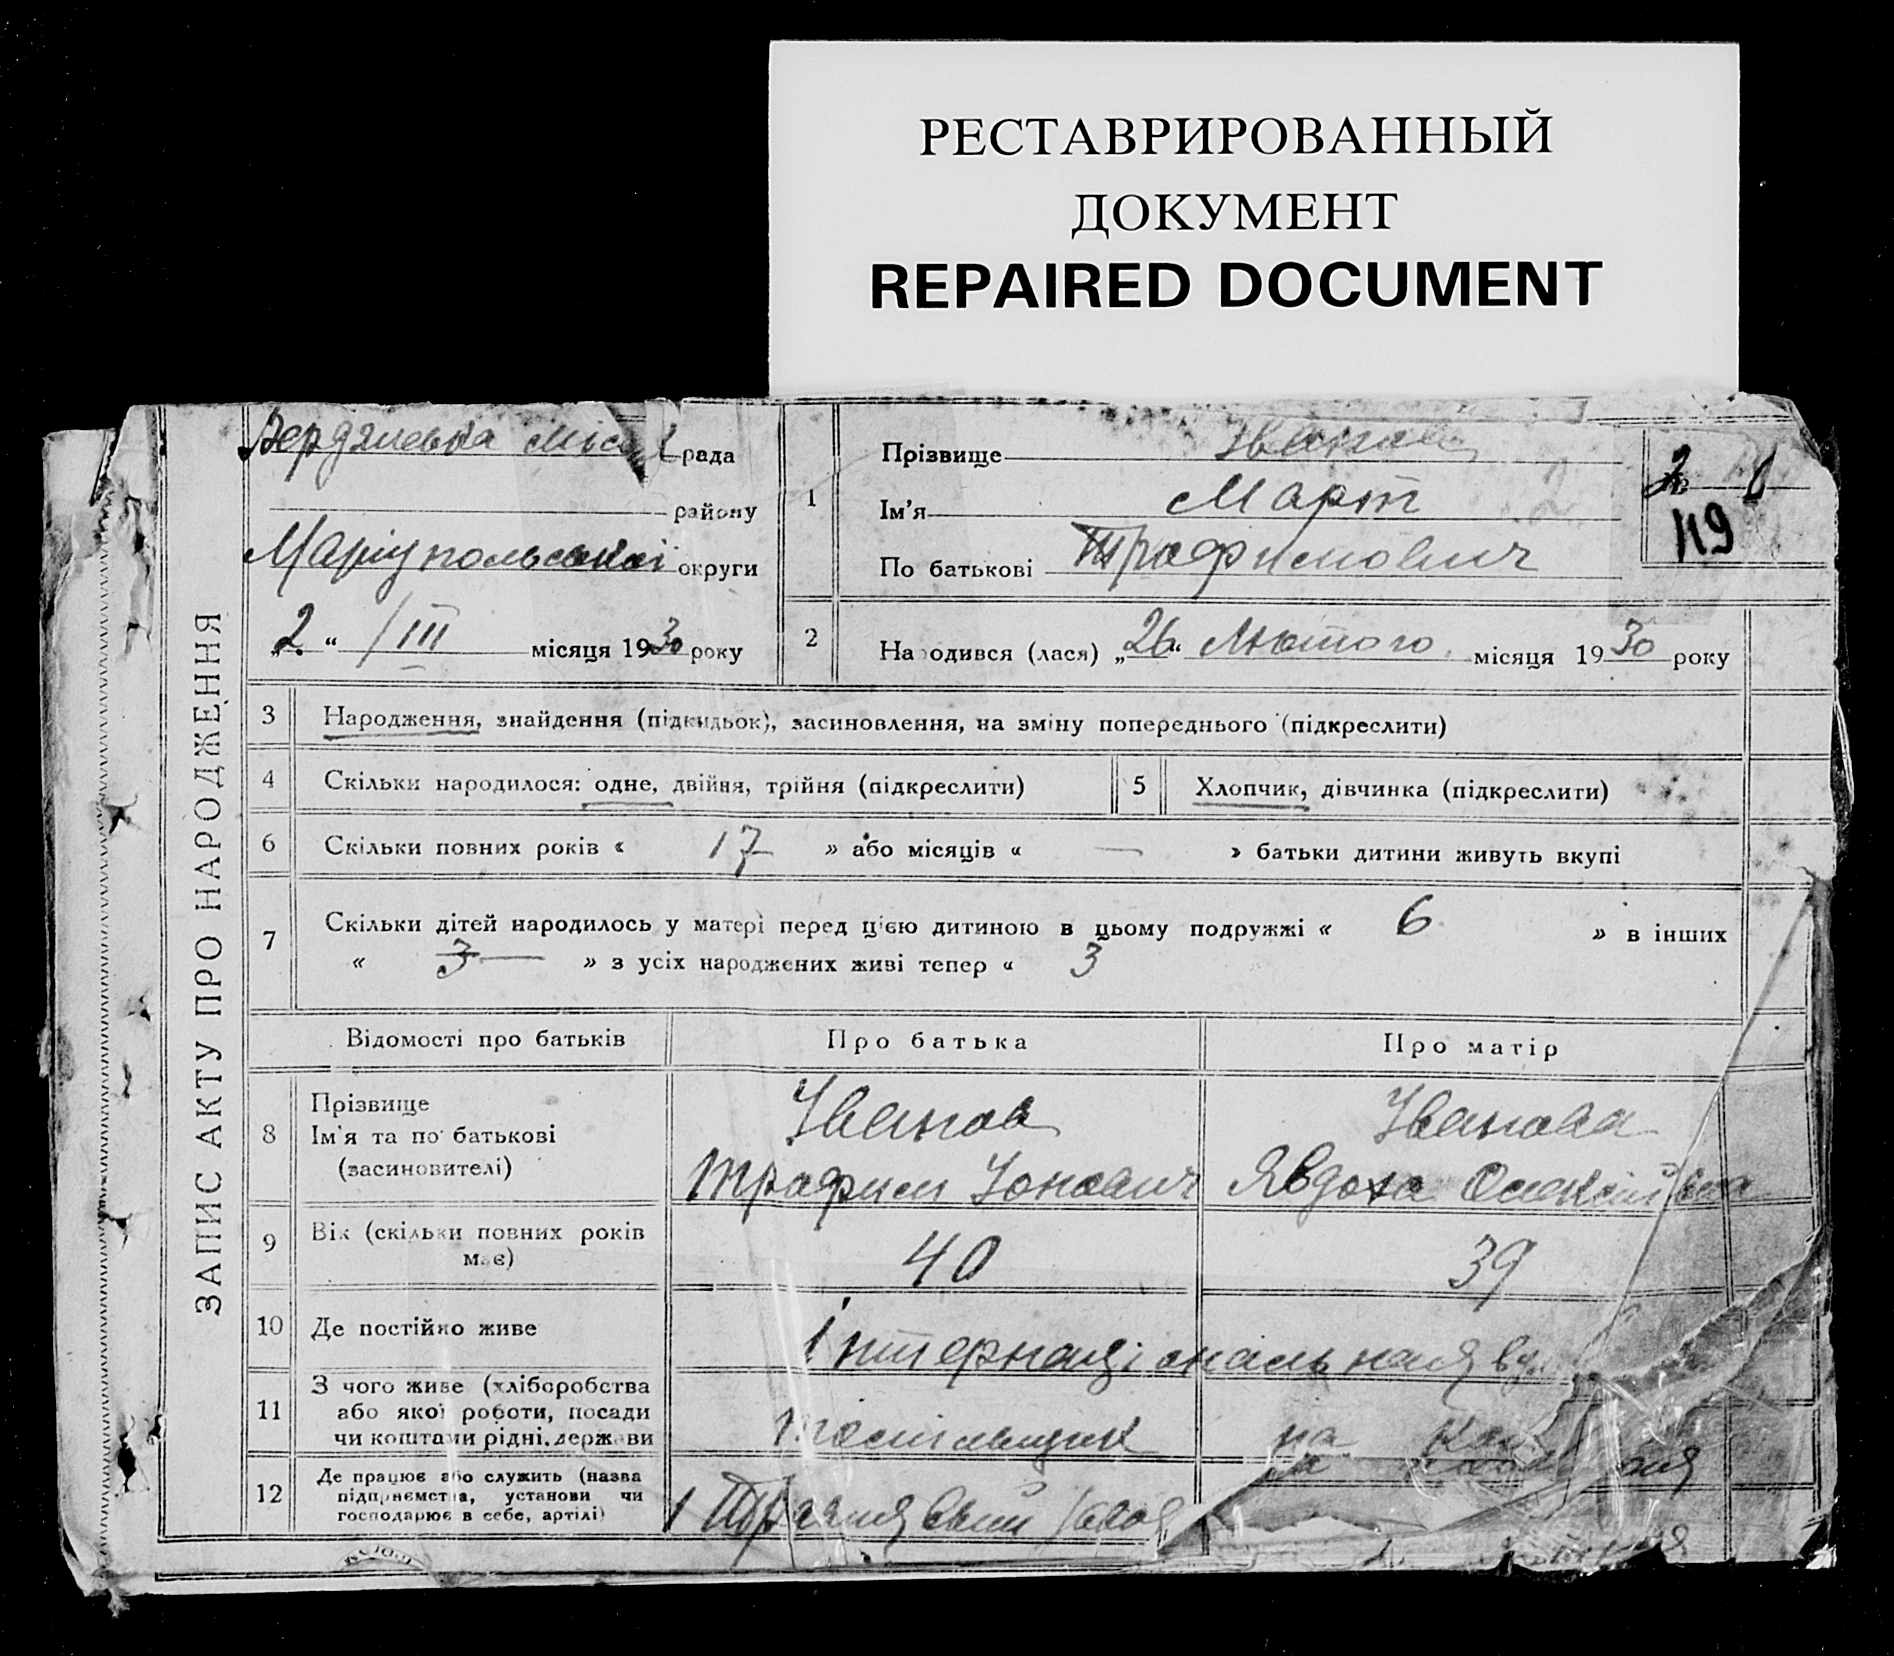 РЕСТАВРИРОВАННЫЙ
ДОКУМЕНТ
REPAIRED DOCUMENT
ЗАПИС АКТУ ПРО НАРОДЖЕННЯ
рада
району
Маріупольської округи
„2“ /III місяця 1930 року
1
Прізвище Іванов
Ім'я Март
По батькові Трафимович
119
2 Народився (лася) „26“ Лютого місяця 1930 року
3 Народження, знайдення (підкидьок), засиновлення, на зміну попереднього (підкреслити)
4 Скільки народилося: одне, двійня, трійня (підкреслити) 5 Хлопчик, дівчинка (підкреслити)
6 Скільки повних років « 17 » або місяців « — » батьки дитини живуть вкупі
7 Скільки дітей народилось у матері перед цією дитиною в цьому подружжі « 6 » в інших
« 3 — » з усіх народжених живі тепер « 3
Відомості про батьків Про батька Про матір
8 Прізвище
Ім'я та по батькові
(засиновителі)
Іванов
Трафим Іонович
Іванова
Явдоха Олексіївна
9 Вік (скільки повних років має) 40 39
10 Де постійно живе Інтернаціональная ву.
11 З чого живе (хліборобства
або якої роботи, посади
чи коштами рідні, держави
на
12 Де працює або служить (назва
підприємства, установи чи
господарює в себе, артілі)